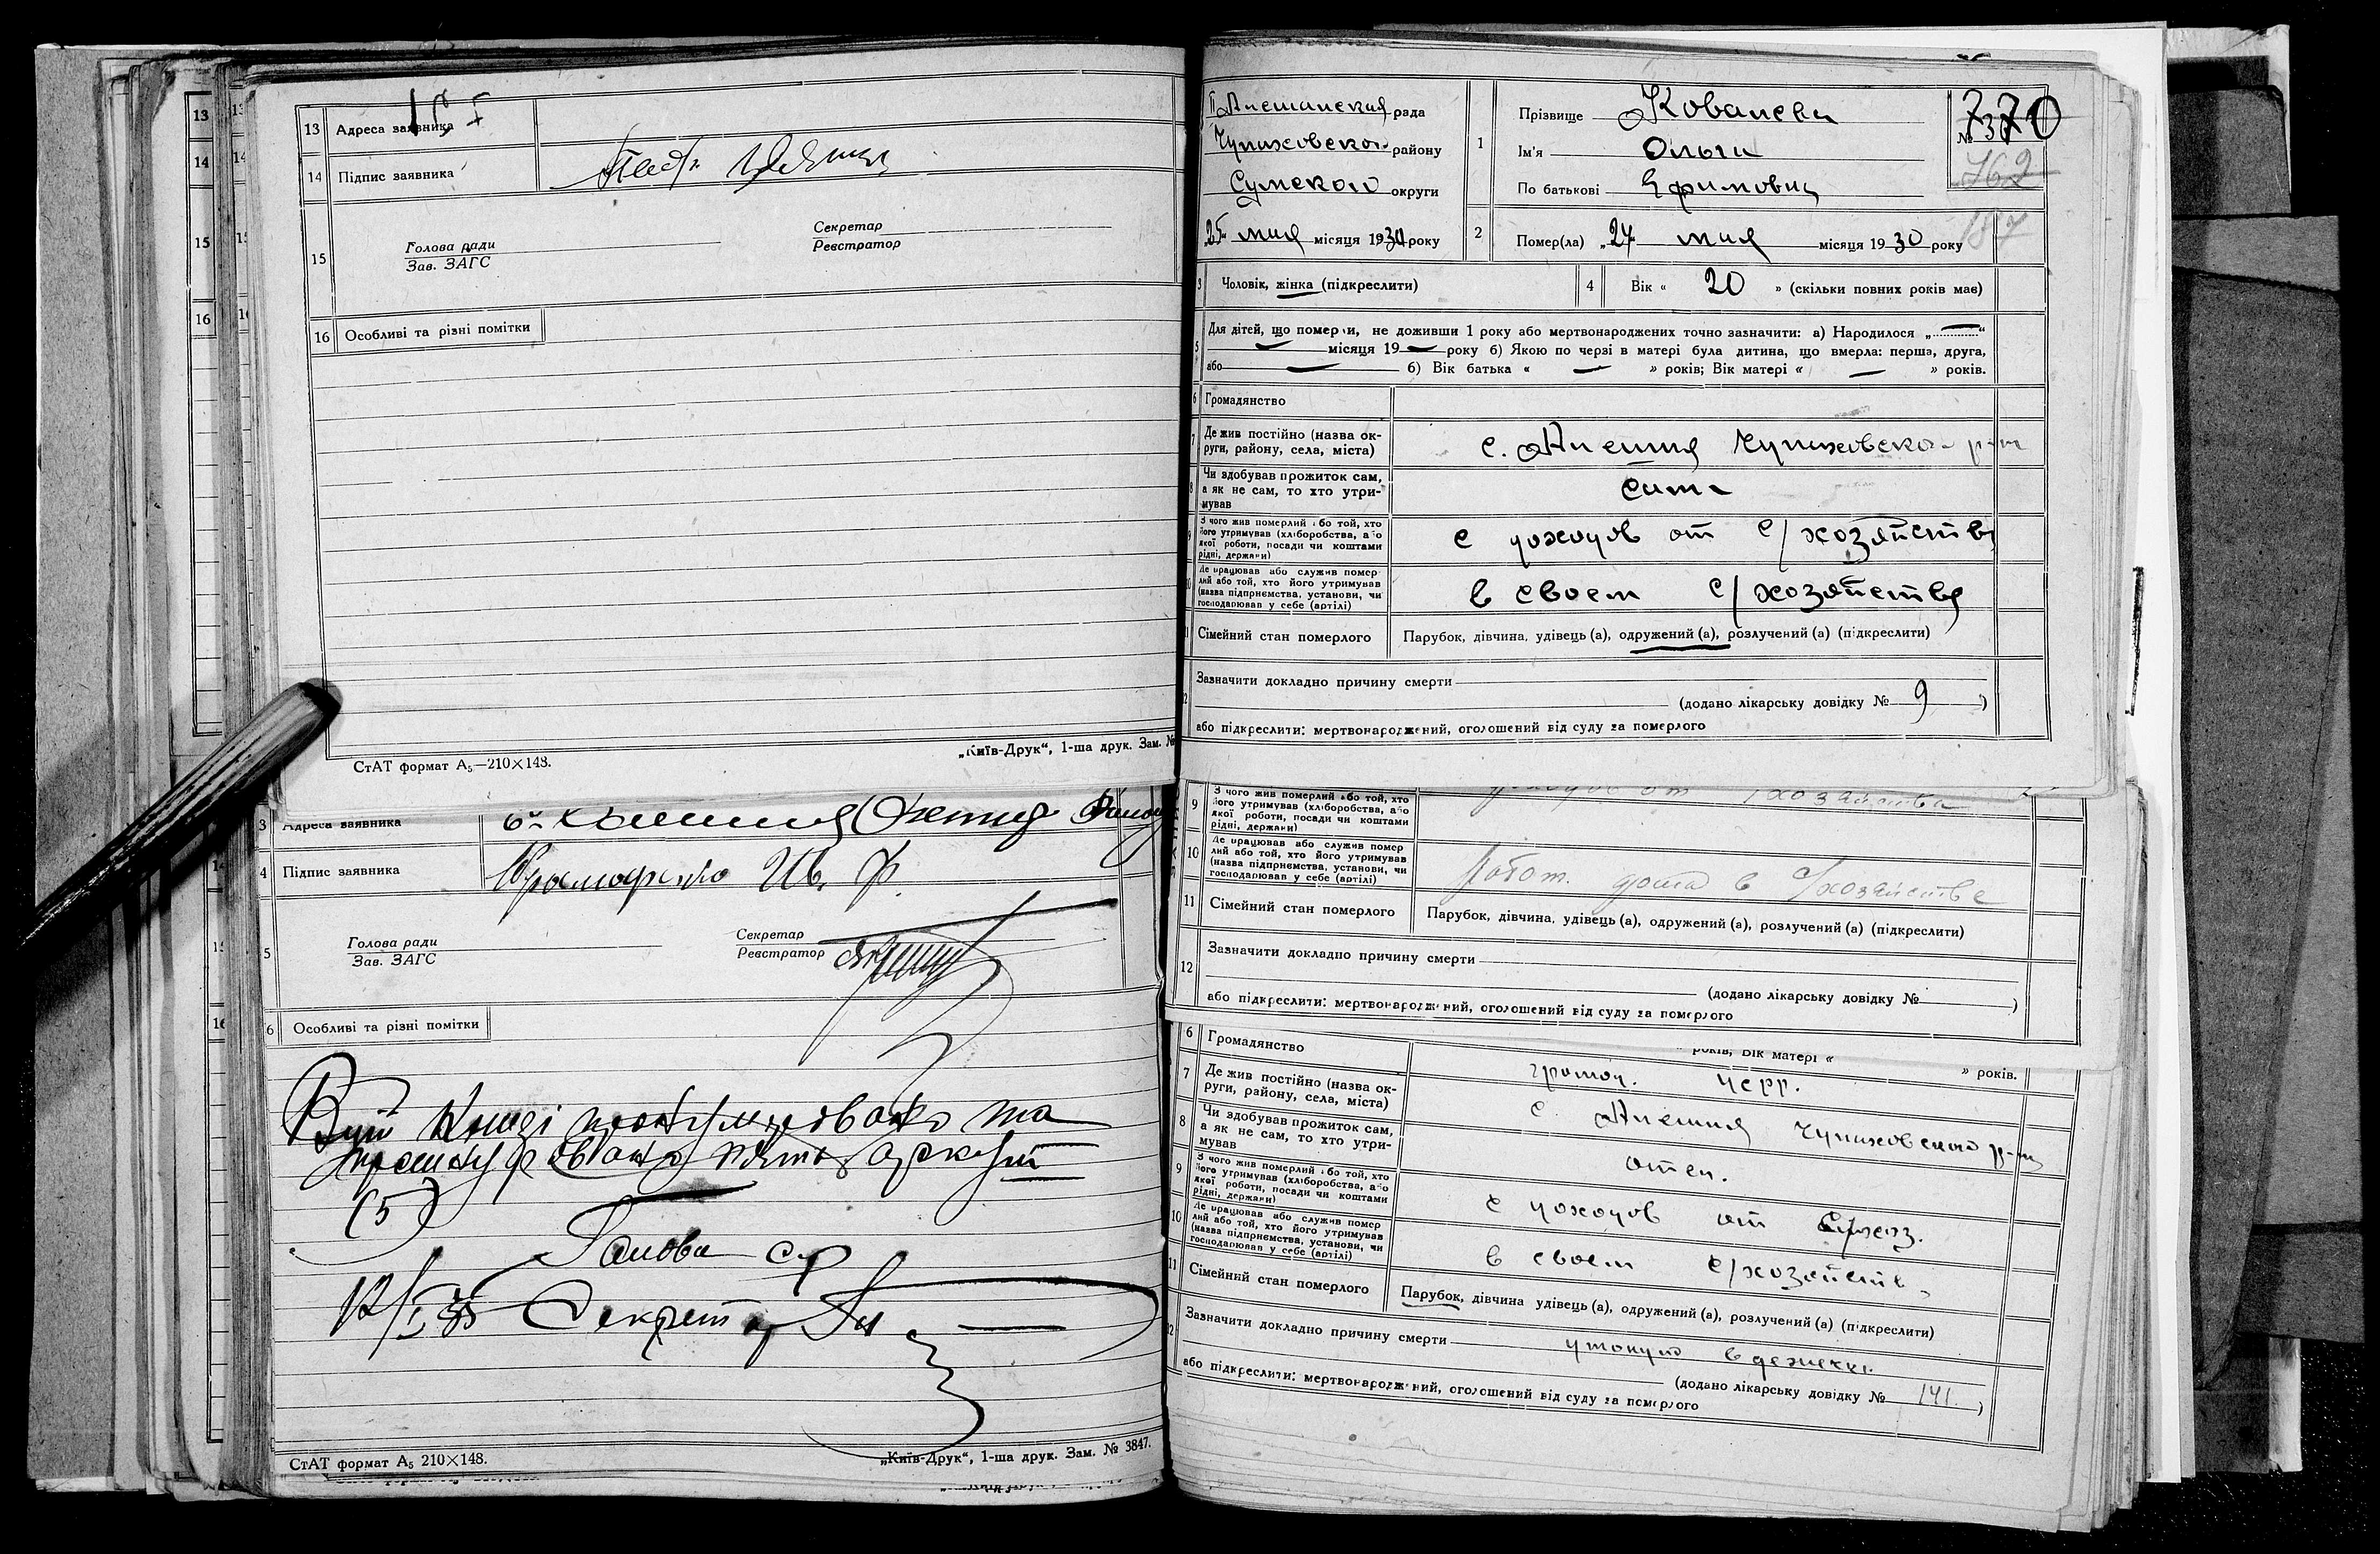 13 Адреса заявника
14 Підпис заявника
15 Голова ради
Зав. ЗАГС
Секретар
Реєстратор
16 Особливі та різні помітки
СтАТ формат А5—210×148.
„Київ-Друк“, 1-ша друк. Зам. №
рада
Чупиховского району
Сумского округи
„25“ мая місяця 1930 року
1 Прізвище Ковалева
Ім'я Ольга
По батькові Ефимовна
№ 770
762
187
2 Помер(ла) „24 мая місяця 1930 року
3 Чоловік, жінка (підкреслити)
4 Вік « 20 » (скільки повних років має)
5 Для дітей, що померли, не доживши 1 року або мертвонароджених точно зазначити: а) Народилося „ “
місяця 19 року б) Якою по черзі в матері була дитина, що вмерла: перша, друга,
або б) Вік батька « » років; Вік матері « » років.
6 Громадянство
7 Де жив постійно (назва округи, району, села, міста)
с. Алешня Чупиховского р-на
8 Чи здобував прожиток сам,
а як не сам, то хто утримував
сама
9 З чого жив померлий або той, хто
його утримував (хліборобства, або
якої роботи, посади чи коштами
рідні, держави)
с доходов от с/хозяйства
10 Де працював або служив помер
лий або той, хто його утримував
(назва підприємства, установи, чи
господарював у себе (артілі)
в своем с/хозяйстве
11 Сімейний стан померлого
Парубок, дівчина, удівець (а), одружений (а), розлучений (а) (підкреслити)
Зазначити докладно причину смерти
(додано лікарську довідку № 9 )
або підкреслити: мертвонароджений, оголошений від суду за померлого
3 Адреса заявника
4 Підпис заявника Крамаренко Ив. Ф.
5 Голова ради
Зав. ЗАГС
Секретар
Реєстратор
6 Особливі та різні помітки
В цій Книзі пронумеровано та
прошнуровано п'ять аркушів
(5)
Голова с/р
Секретар
СтАТ формат А5 210×148.
„Київ-Друк“, 1-ша друк. Зам. № 3847.
9 З чого жив померлий або той, хто
його утримував (хліборобства, або
якої роботи, посади чи коштами
рідні, держави)
доходов от хозяйства
10 Де працював або служив помер
лий або той, хто його утримував
(назва підприємства, установи, чи
господарював у себе (артілі)
Работ. дома в с/хозяйстве
11 Сімейний стан померлого
Парубок, дівчина, удівець (а), одружений (а), розлучений (а) (підкреслити)
12 Зазначити докладно причину смерти
(додано лікарську довідку № )
або підкреслити: мертвонароджений, оголошений від суду за померлого
років; Вік матері « » років.
6 Громадянство
7 Де жив постійно (назва округи, району, села, міста)
с. Алешня Чупиховского р-на
8 Чи здобував прожиток сам,
а як не сам, то хто утримував
отец.
9 З чого жив померлий або той, хто
його утримував (хліборобства, або
якої роботи, посади чи коштами
рідні, держави)
с доходов от с/хоз.
10 Де працював або служив помер
лий або той, хто його утримував
(назва підприємства, установи, чи
господарював у себе (артілі)
в своем с/хозяйств
11 Сімейний стан померлого
Парубок, дівчина удівець (а), одружений (а), розлучений (а) (підкреслити)
Зазначити докладно причину смерти утонул в
(додано лікарську довідку № 141. )
або підкреслити: мертвонароджений, оголошений від суду за померлого